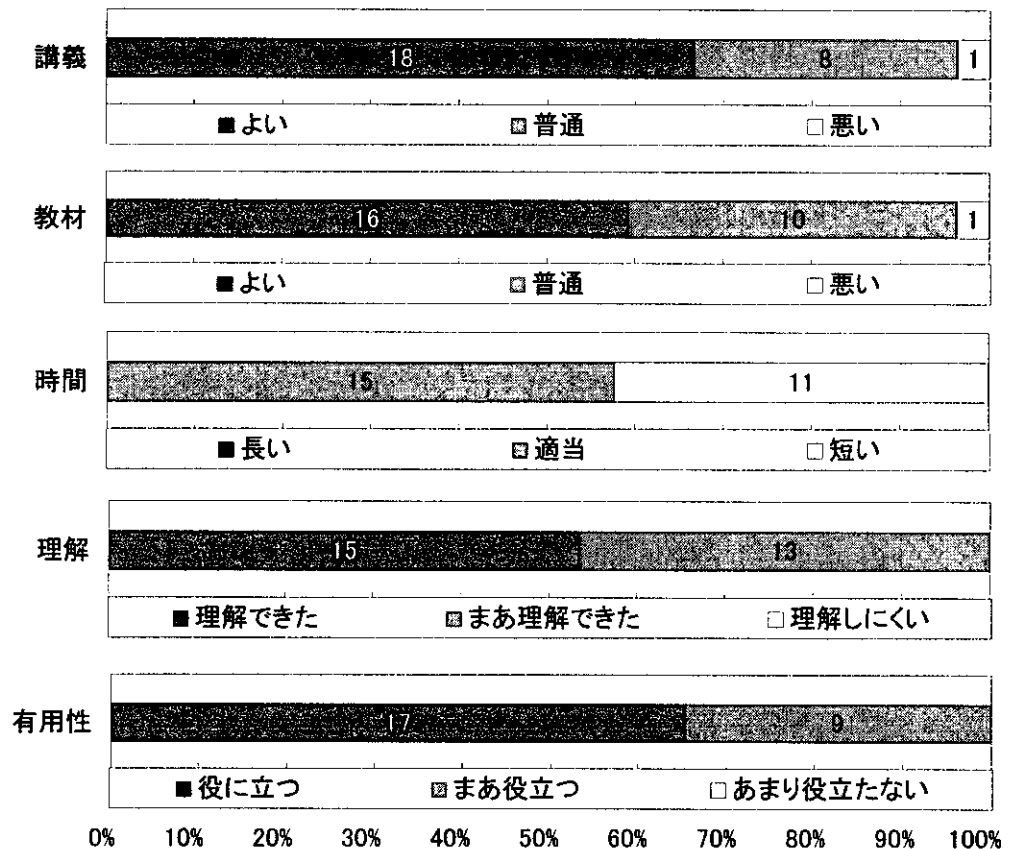 講義 18 8 1
■よい ■普通 □悪い
教材 16 10 1
■よい ■普通 □悪い
時間 15 11
■長い ■適当 □短い
理解 15 13
■理解できた ■まあ理解できた □理解しにくい
有用性 17 9
■役に立つ ■まあ役立つ □あまり役立たない
0% 10% 20% 30% 40% 50% 60% 70% 80% 90% 100%